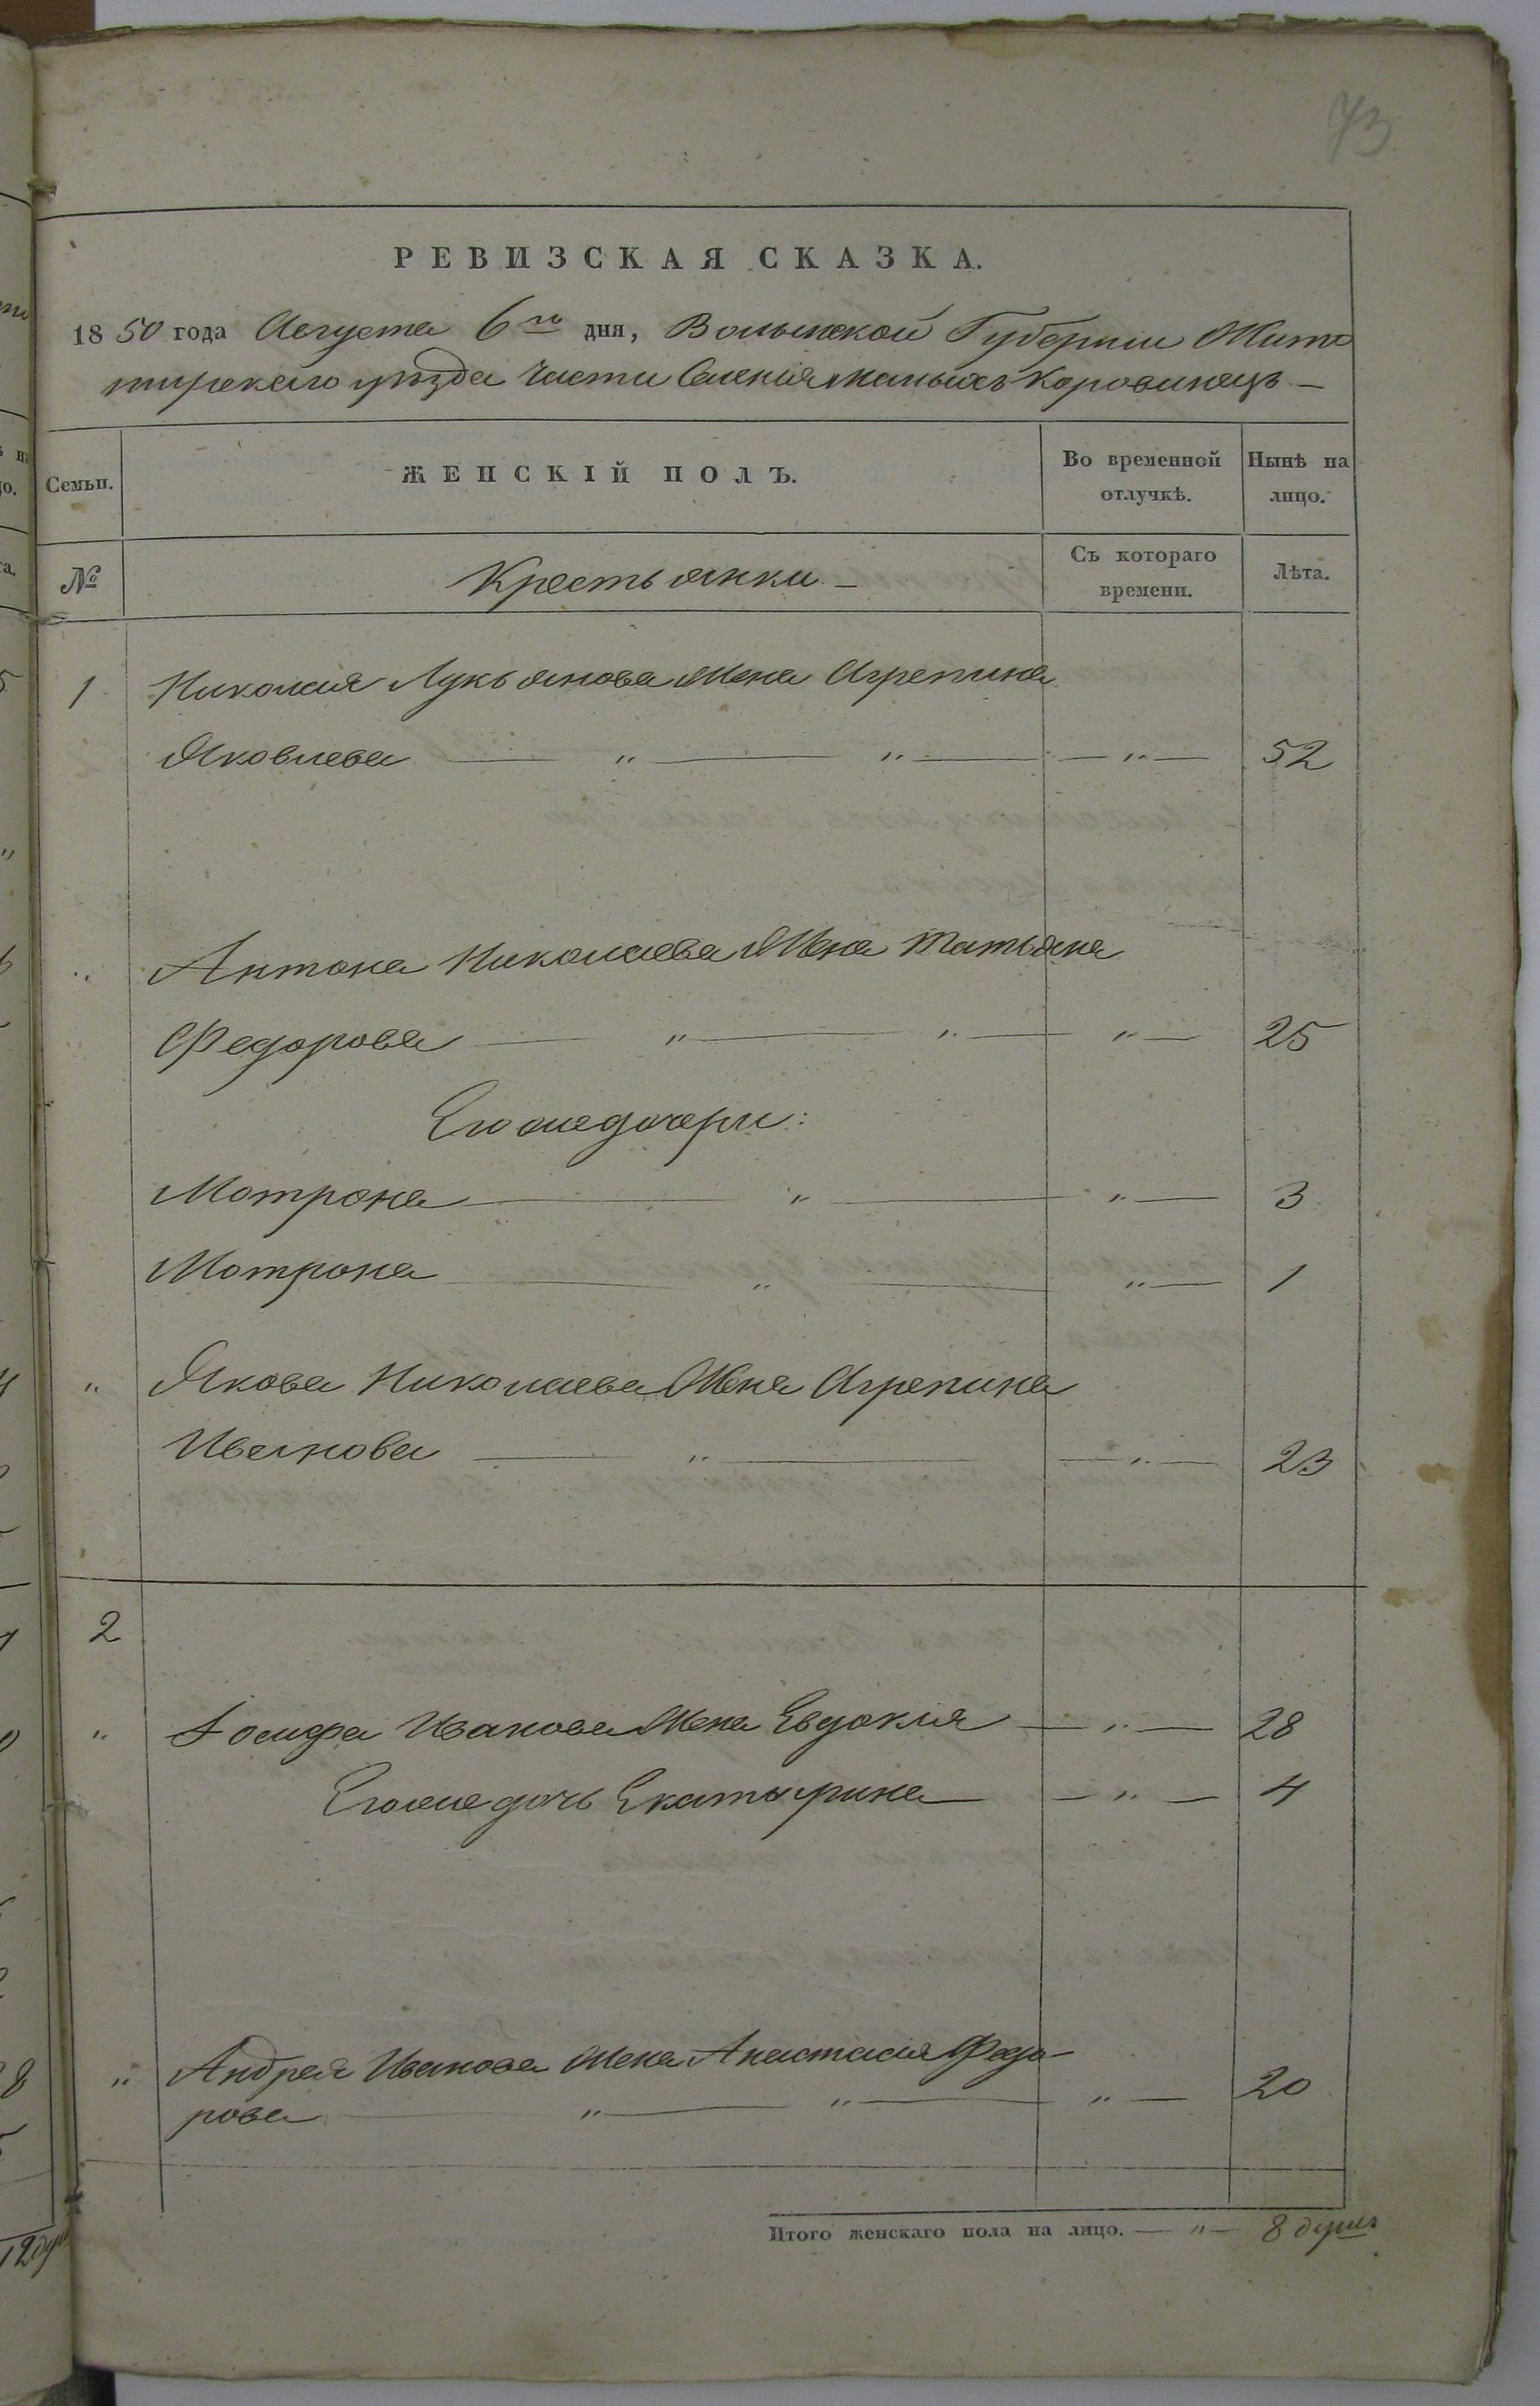 73
РЕВИЗСКАЯ СКАЗКА.
1850 года Августа 6го дня, Волынской Губернии Жито
мирского уѣзда части Селенія малыхъ Коровинецъ —
Семьи. ЖЕНСКІЙ ПОЛЪ. Во временной отлучкѣ. Нынѣ на лицо.
№ Крестьянки — Съ котораго времени. Лѣта.
1 Николая Лукьянова Жена Агрепина
Яковлева — " — " — — " — 52
" Антона Николаева Жена Татьяна
Федорова — " — " — " — 25
Его же дочери:
Мотрона — " — " — 3
Мотрона — " — " — 1
" Якова Николаева Жена Агрепина
Иванова — " — — " — 23
2
" Іосифа Иванова Жена Евдокія — " — 28
Его же дочь Екатырина — — " — 4
" Андрея Иванова Жена Анастасія Федо-
рова — " — " — " — 20
Итого женскаго пола на лицо. — " — 8 душъ